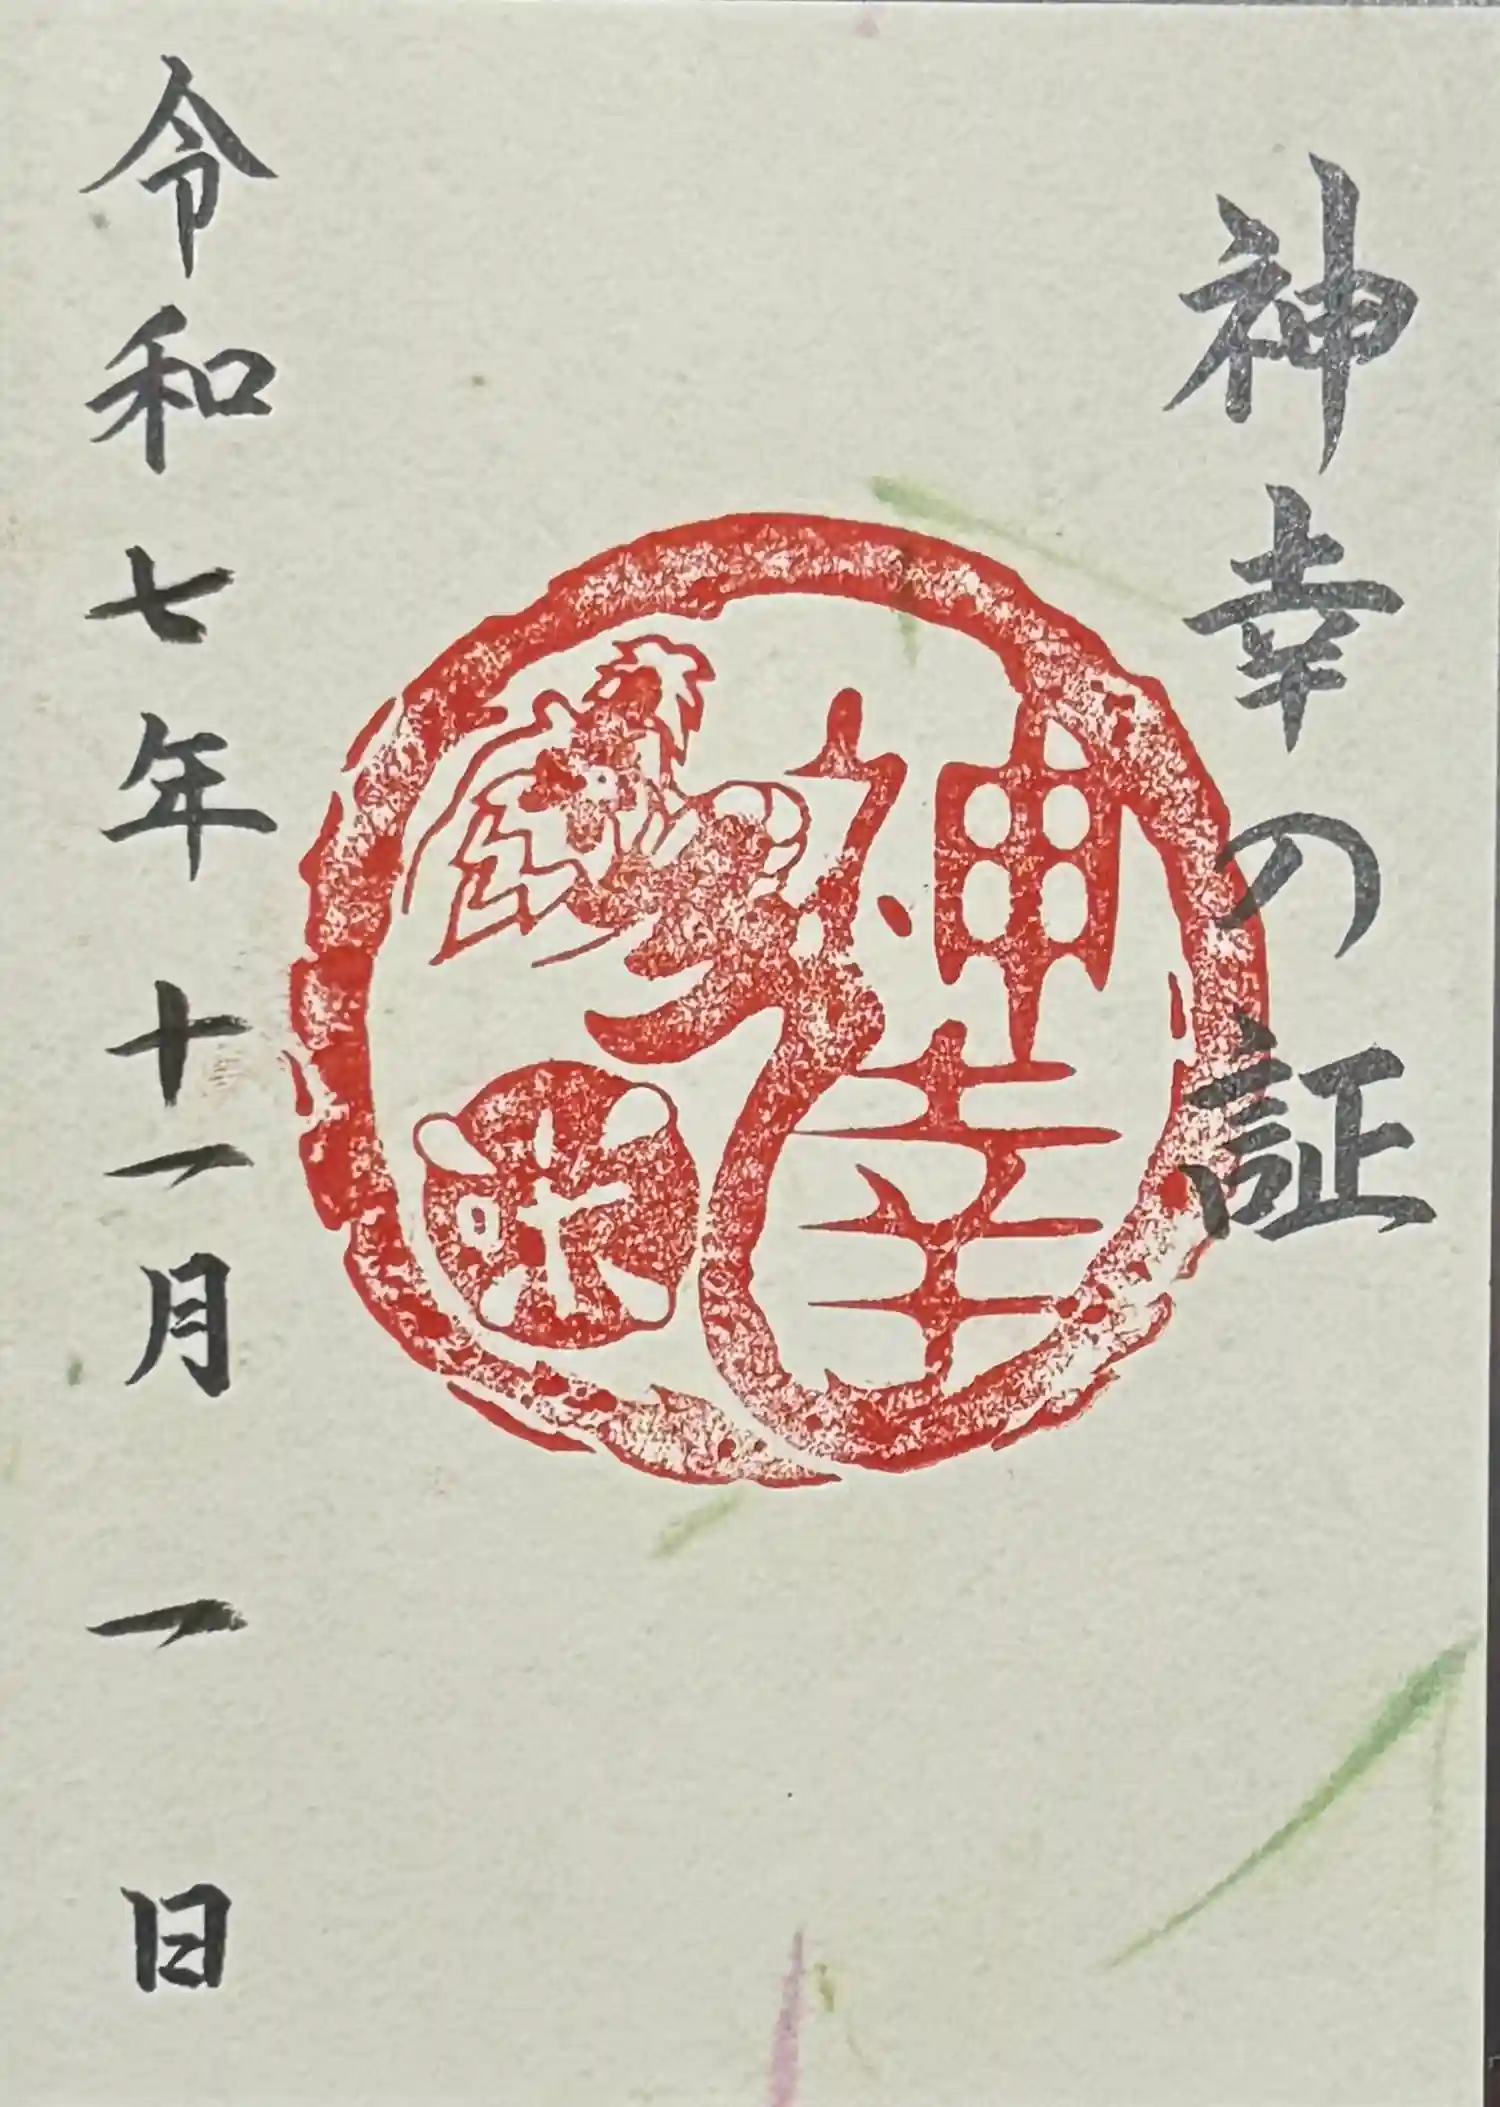 神幸の証
神幸
味
令和七年十一月一日